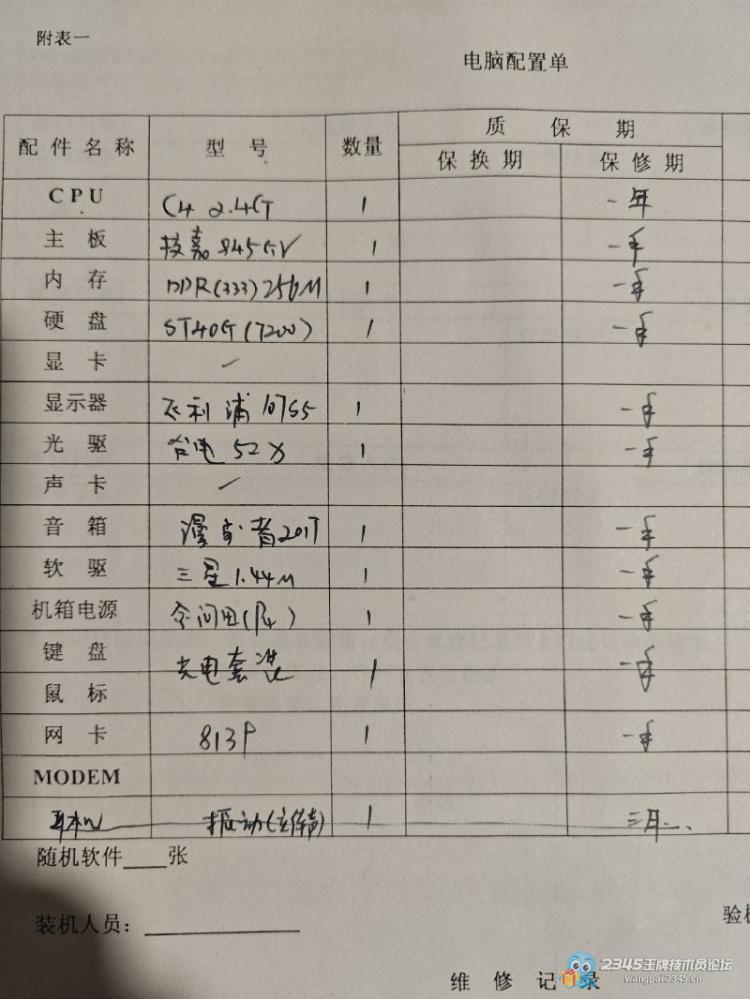 附表一
电脑配置单
配件名称 型号 数量 质保期
保换期 保修期
CPU C4 2.4G 1 一年
主板 技嘉845GV 1 一年
内存 DDR(333)256M 1 一年
硬盘 ST40G(7200) 1 一年
显卡
显示器 飞利浦107S5 1 一年
光驱 台电52X 1 一年
声卡
音箱 漫步者201T 1 一年
软驱 三星1.44M 1 一年
机箱电源 (P4) 1 一年
键盘 光电套装 1 一年
鼠标
网卡 1 一年
MODEM
耳机 振动(立体声) 1 三月
随机软件____张
装机人员：
验机
维修记录
2345王牌技术员论坛
wangpai2345.cn